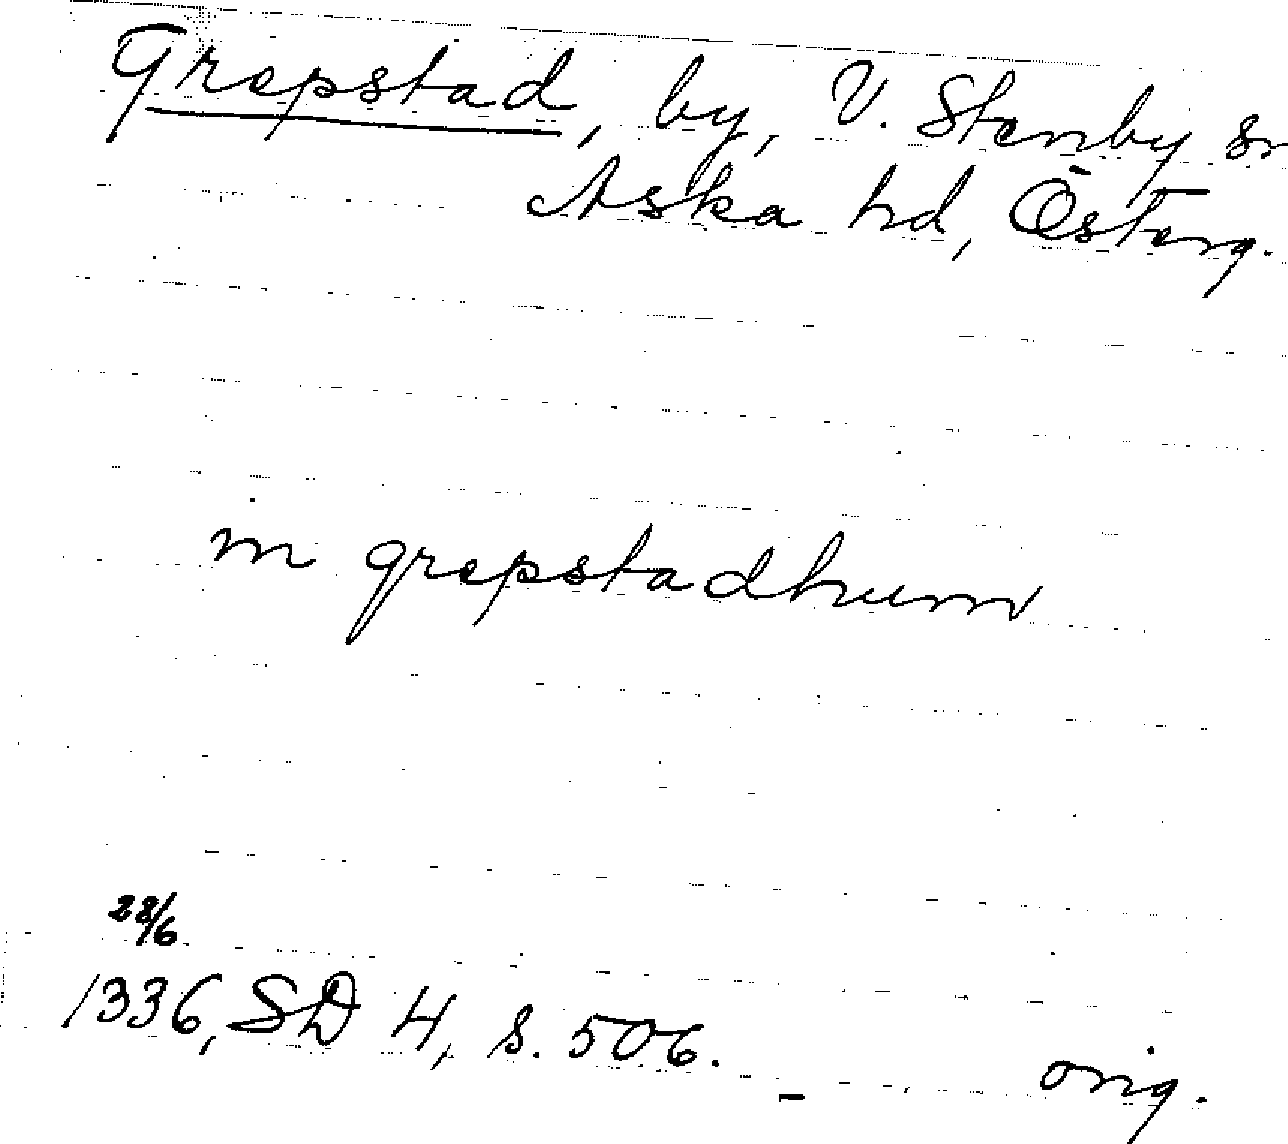 Grepstad, by, V. Stenby sn
Aska hd, Österg.
m grepstadhum
28/6
1336, SD 4, s. 506.
orig.